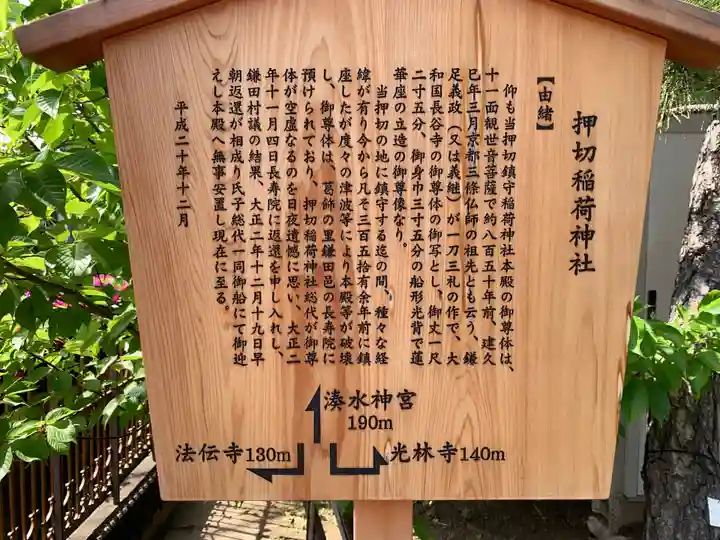 押切稲荷神社
【由緒】
仰も当押切鎮守稲荷神社本殿の御尊体は、
十一面観世音菩薩で約八百五十年前、建久
巳年三月京都三條仏師の祖光とも云う、鎌
足義政(又は義継)が一刀三礼の作で、大
和国長谷寺の御尊体の御写とし、御丈一尺
二寸五分、御身巾三寸五分の船形光背で蓮
華座の立造の御尊像なり。
当押切の地に鎮守する迄の間、種々な経
緯が有り今から凡そ三百五拾有余年前に鎮
座したが度々の津波等により本殿等が破壊
し、御尊体は、葛飾の里鎌田邑の長寿院に
預けられており、押切稲荷神社総代が御尊
体が空虚なるのを日夜遺憾に思い、大正二
年十一月四日長寿院に返還を申し入れし、
鎌田村議の結果、大正二年十二月十九日早
朝返還が相成り氏子総代一同御船にて御迎
えし本殿へ無事安置し現在に至る。
平成二十年十二月
湊水神宮
190m
法伝寺130m
光林寺140m